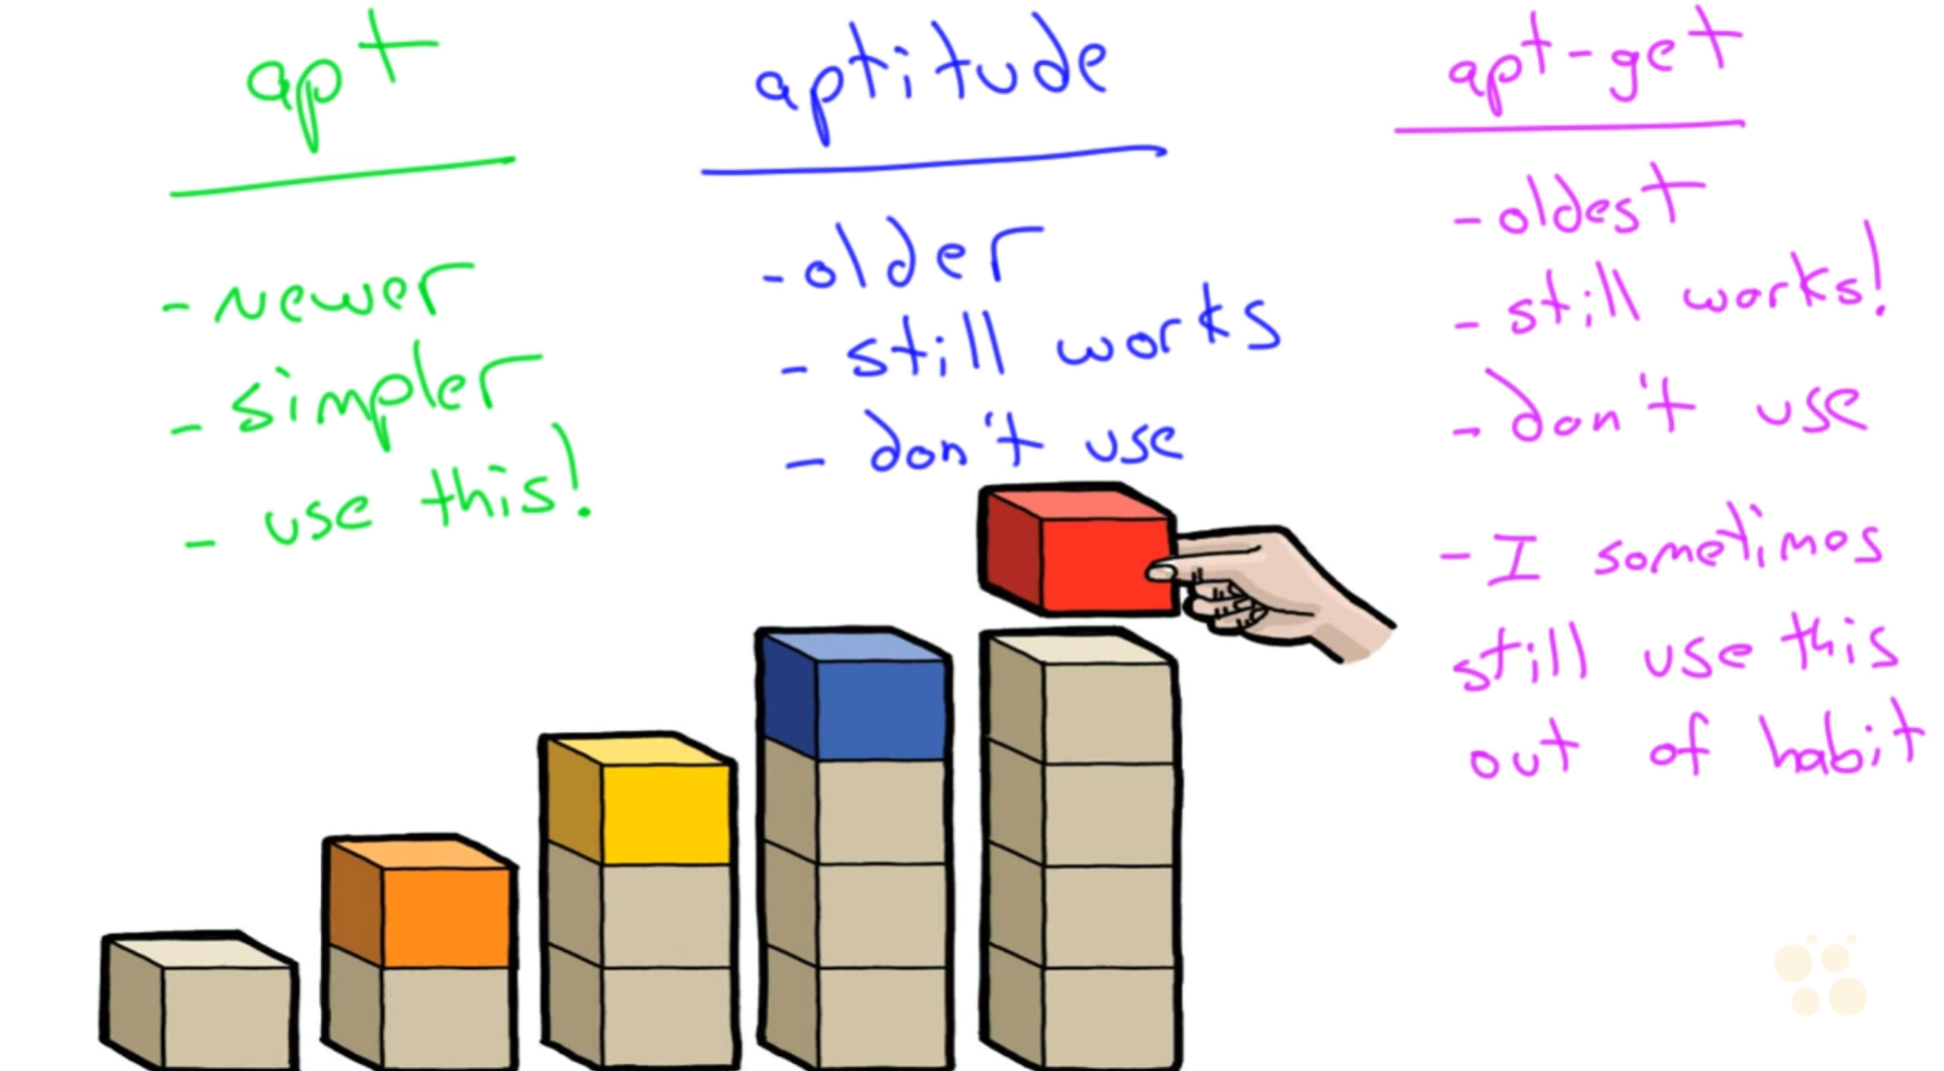 apt
- newer
- simpler
- use this!
aptitude
- older
- still works
- don't use
apt-get
- oldest
- still works!
- don't use
- I sometimes
still use this
out of habit